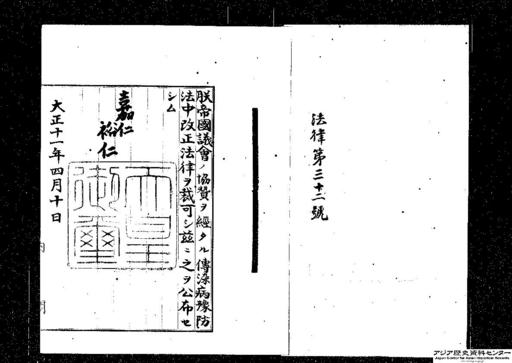 法律第三十二號
朕帝國議會ノ協贊ヲ經タル傳染病豫防
法中改正法律ヲ裁可シ茲ニ之ヲ公布セ
シム
嘉仁
裕仁
天皇
御璽
大正十一年四月十日
内閣
アジア歴史資料センター
Japan Center for Asian Historical Records